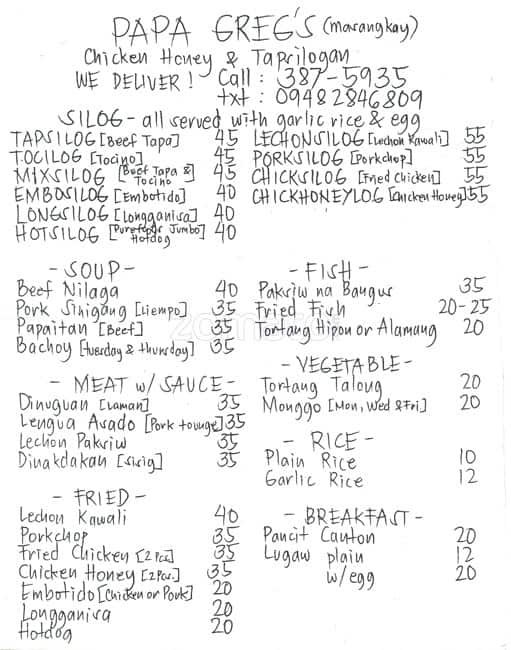 PAPA GREG'S (marangkay)
Chicken Honey & Tapsilogan
WE DELIVER! Call: 387-5935
txt: 09482846809
SILOG - all served with garlic rice & egg
TAPSILOG [Beef Tapa] 45
TOCILOG [Tocino] 45
MIXSILOG [Beef Tapa & Tocino] 45
EMBOSILOG [Embotido] 40
LONGSILOG [Longganisa] 40
HOTSILOG [Purefoods Jumbo Hotdog] 40
LECHONSILOG [Lechon Kawali] 55
PORKSILOG [Porkchop] 55
CHICKSILOG [Fried Chicken] 55
CHICKHONEYLOG [Chicken Honey] 55
- SOUP -
Beef Nilaga 40
Pork Sinigang [Liempo] 35
Papaitan [Beef] 35
Bachoy [tuesday & thursday] 35
- MEAT w/ SAUCE -
Dinuguan [Laman] 35
Lengua Asado [Pork tounge] 35
Lechon Paksiw 35
Dinakdakan [Sisig] 35
- FRIED -
Lechon Kawali 40
Porkchop 35
Fried Chicken [2pcs] 35
Chicken Honey [2Pcs.] 35
Embotido [Chicken or Pork] 20
Longganisa 20
Hotdog 20
- FISH -
Paksiw na Bangus 35
Fried Fish 20-25
Tortang Hipon or Alamang 20
- VEGETABLE -
Tortang Talong 20
Monggo [Mon, Wed & Fri] 20
- RICE -
Plain Rice 10
Garlic Rice 12
- BREAKFAST -
Pancit Canton 20
Lugaw plain 12
w/egg 20